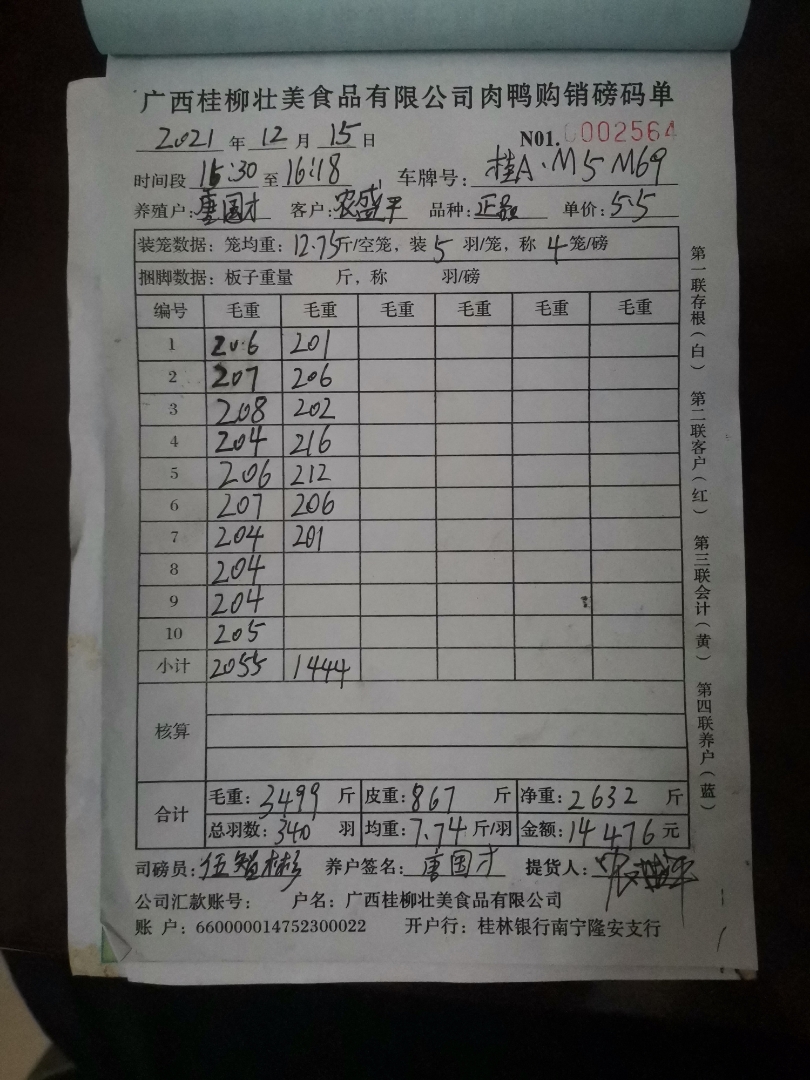 广西桂柳壮美食品有限公司肉鸭购销磅码单
2021 年 12 月 15 日 N01. 0002564
时间段 15:30 至 16:18 车牌号: 桂A·M5M69
养殖户: 唐国才 客户: 农盛平 品种: 单价: 5.5
装笼数据: 笼均重: 12.75斤/空笼, 装 5 羽/笼, 称 4 笼/磅
捆脚数据: 板子重量 斤, 称 羽/磅
编号 毛重 毛重 毛重 毛重 毛重 毛重
1 206 201
2 207 206
3 208 202
4 204 216
5 206 212
6 207 206
7 204 201
8 204
9 204
10 205
小计 2055 1444
核算
合计 毛重: 3499 斤 皮重: 867 斤 净重: 2632 斤
总羽数: 340 羽 均重: 7.74 斤/羽 金额: 14476 元
司磅员: 伍智彬 养户签名: 唐国才 提货人:
公司汇款账号: 户名: 广西桂柳壮美食品有限公司
账 户: 660000014752300022 开户行: 桂林银行南宁隆安支行
第一联存根(白) 第二联客户(红) 第三联会计(黄) 第四联养户(蓝)